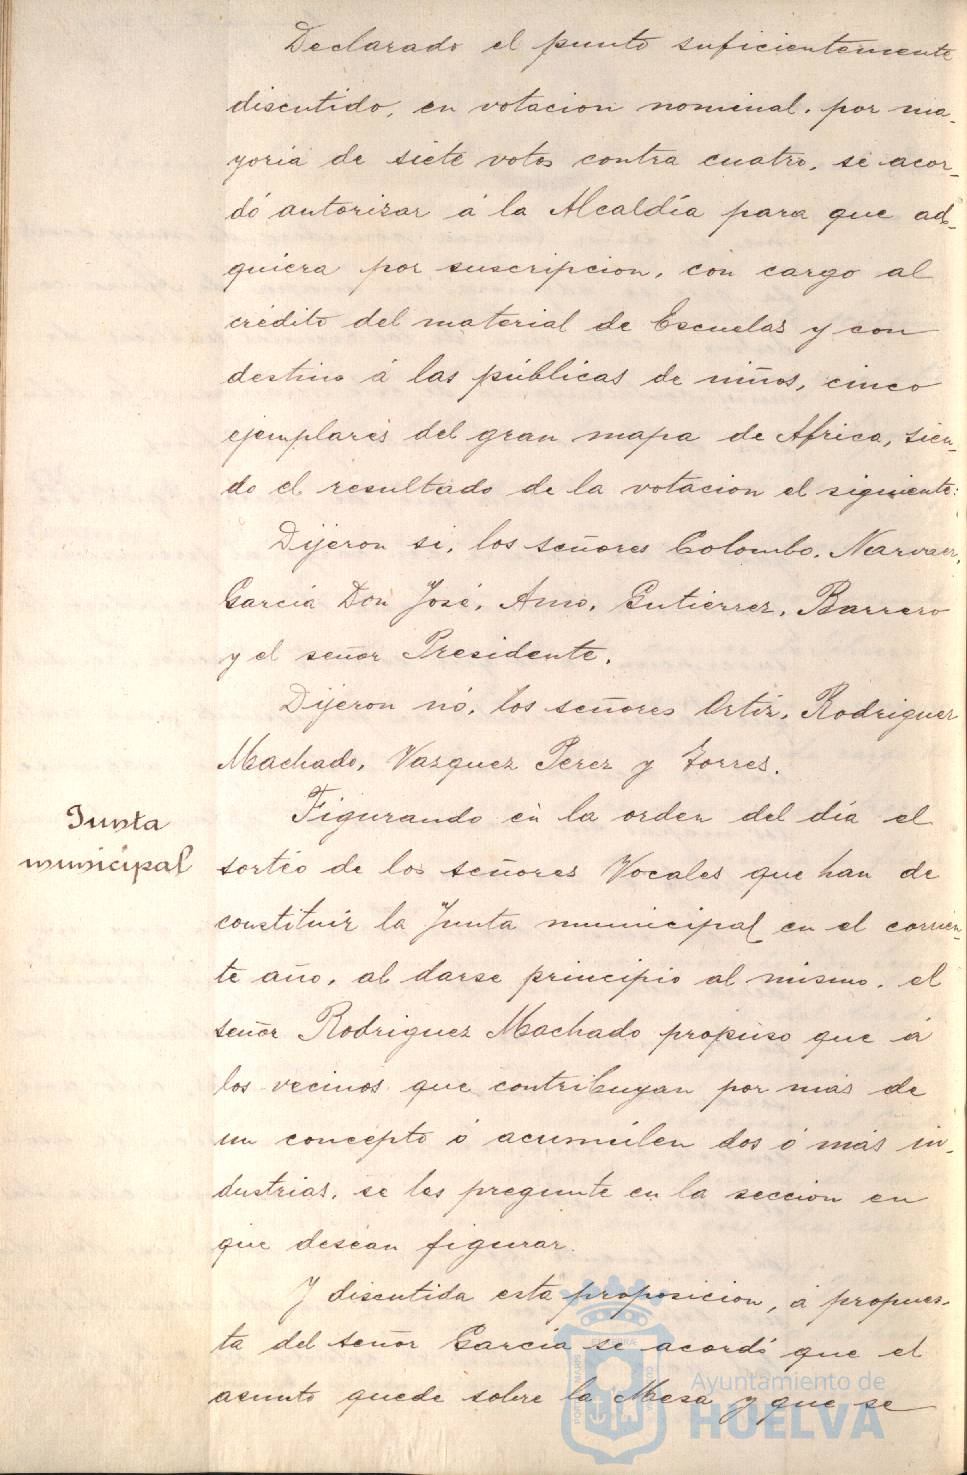 Declarado el punto suficientemente
discutido, en votacion nominal, por ma-
yoria de siete votos contra cuatro, se acor-
dó autorizar á la Alcaldía para que ad-
quiera por suscripcion, con cargo al
crédito del material de Escuelas y con
destino á las públicas de niños, cinco
ejemplares del gran mapa de Africa, sien-
do el resultado de la votacion el siguiente:
Dijeron si, los señores Colombo, Narvaez,
Garcia Don José, Amo, Gutierrez, Barrero
y el señor Presidente.
Dijeron nó, los señores Ortiz, Rodriguez
Machado, Vazquez Perez y Torres.
Junta
municipal
Figurando en la orden del dia el
sorteo de los señores Vocales que han de
constituir la Junta municipal en el corrien-
te año, al darse principio al mismo, el
señor Rodriguez Machado propuso que á
los vecinos que contribuyan por más de
un concepto ó acumulen dos ó más in-
dustrias, se les pregunte en la seccion en
que deséan figurar.
Y discutida esta proposicion, á propues-
ta del señor Garcia se acordó que el
asunto quede sobre la Mesa y que se
Ayuntamiento de
HUELVA